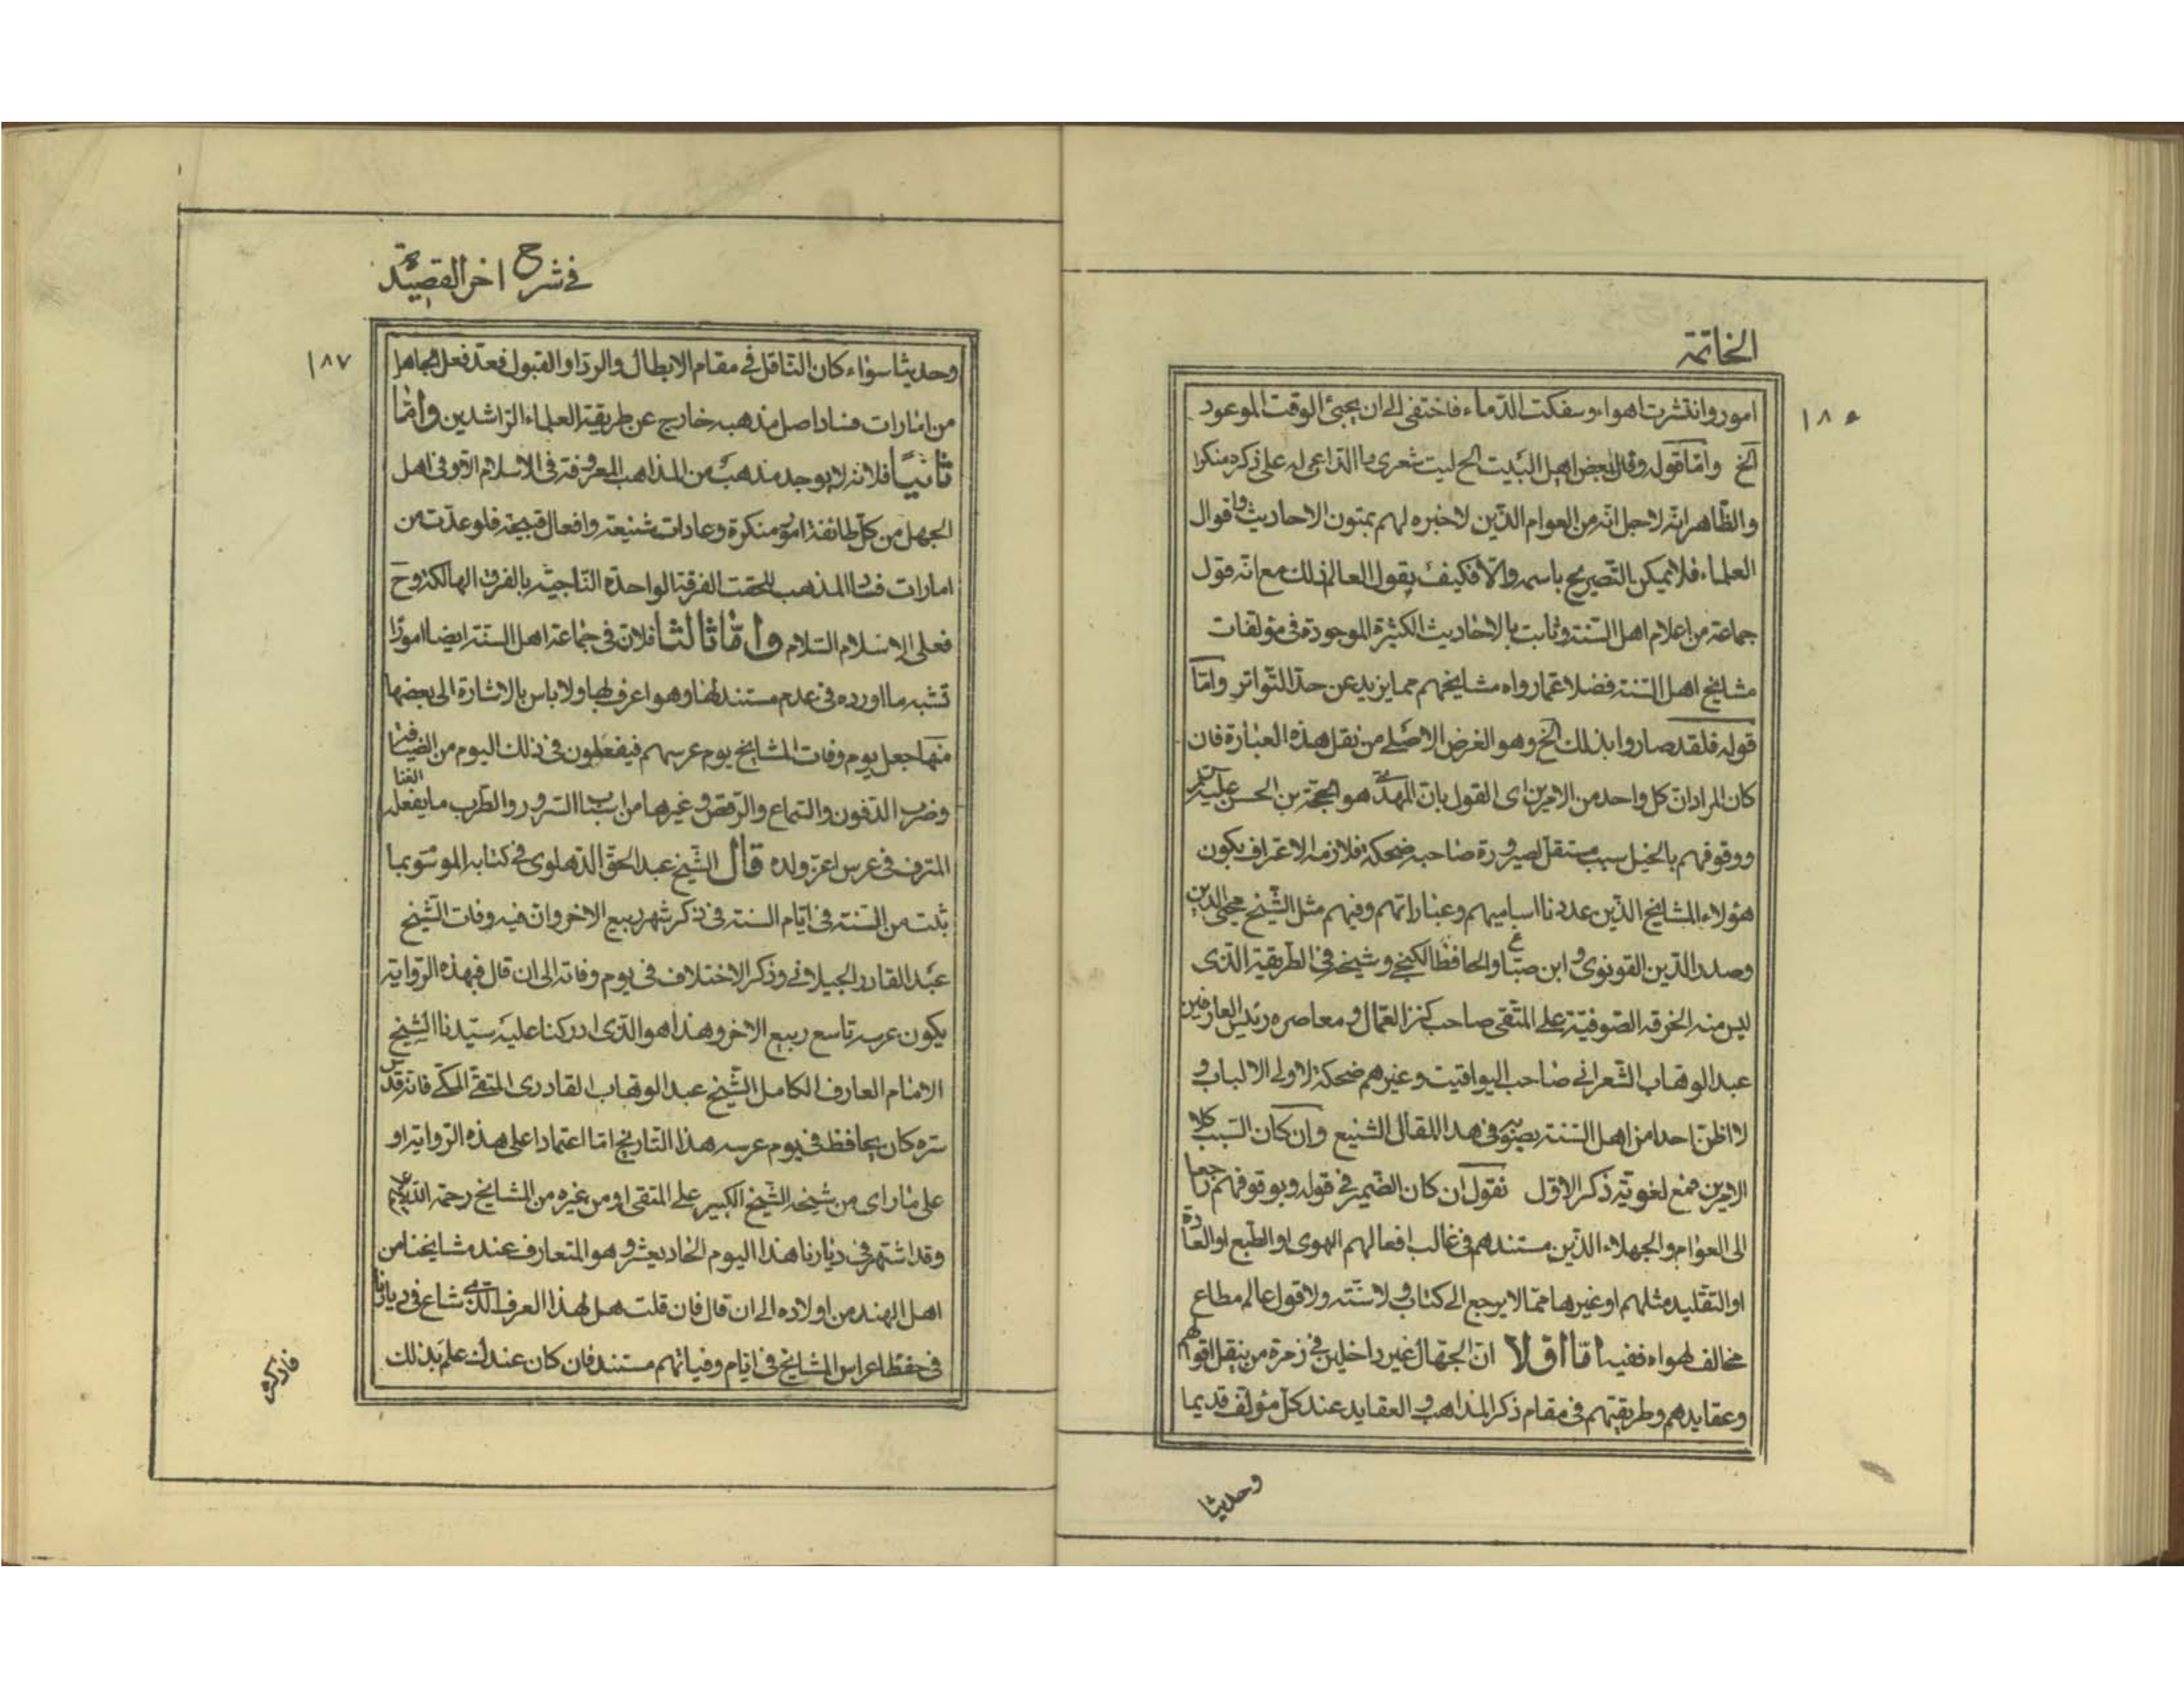 الخاتمة
١٨٦
امور وانتشرت اهواء وسفكت الدّماء فاختفى الى ان يجيئ الوقت الموعود
الخ وامّا قوله وقال بعض اهل البَيت الخ ليت شعرى ما الدّاعى له على ذكره منكرا
والظّاهر انّه لاجل انّه من العوام الّذين لاخبره لهم بمتون الاحاديث واقوال
العلماء فلا يمكن التّصريح باسمه والّا فكيف يقول العالم ذلك مع انّه قول
جماعة من اعلام اهل السّنة وثابت بالاحاديث الكثيرة الموجودة فى مؤلفات
مشايخ اهل السّنة فضلا عمّا رواه مشايخهم مما يزيد عن حدّ التّواتر وامّا
قوله فلقد صاروا بذلك الخ وهو الغرض الاصلى من نقل هذه العبارة فان
كان المراد انّ كل واحد من الامرين اى القول بانّ المهدىّ هو الحجّة بن الحسن عليه السّلم
ووقوفهم بالخيل سبب مستقل لصيرورة صاحبه ضحكة فلازمه الاعتراف بكون
هؤلاء المشايخ الّذين عددنا اساميهم وعباراتهم وفيهم مثل الشّيخ محيى الدين
وصدر الدّين القونوى وابن صبّاغ والحافظ الكنجى وشيخه فى الطّريقة الّذى
لبس منه الخرقه الصّوفيّة على المتّقى صاحب كنز العمّال ومعاصره رئيس العارفين
عبد الوهّاب الشّعرانى صاحب اليواقيت وغيرهم ضحكة لاولى الالباب و
لا اظنّ احدا من اهل السّنة يصوّبه فى هذا المقال الشنيع وان كان السّبب كلا
الامرين فمع لغويّة ذكر الاوّل نقول ان كان الضّمير فى قوله وبوقوفهم راجعا
الى العوام والجهلاء الّذين مستندهم فى غالب افعالهم الهوى او الطّبع او العادة
او التقليد مثلهم او غيرها ممّا لا يرجع الى كتاب ولا سنّة ولا قول عالم مطاع
مخالف لهواه ففيه امّا اوّلا انّ الجهّال غير داخلين فى زمرة من ينقل اقوالهم
وعقايدهم وطريقتهم فى مقام ذكر المذاهب والعقايد عند كلّ مؤلّف قديما
وحديثا
فى شرح اخر القصيدة
١٨٧
وحديثا سواء كان النّاقل فى مقام الابطال والردّ او القبول فعدّ فعل الجاهل
من امارات فساد اصل مذهبه خارج عن طريقة العلماء الرّاشدين وامّا
ثانيًا فلانّه لا يوجد مذهب من المذاهب المعروفة فى الاسلام الّا وفى اهل
الجهل من كلّ طائفة امور منكرة وعادات شنيعة وافعال قبيحة فلو عدّت من
امارات فساد المذهب للحقت الفرقة الواحدة النّاجية بالفرق الهالكة وح
فعلى الاسلام السّلام وامّا ثالثا فلانّ فى جماعة اهل السّنة ايضا امورًا
تشبه ما اورده فى عدم مستند لها وهو اعرف بها ولا باس بالاشارة الى بعضها
منها جعل يوم وفات المشايخ يوم عرسهم فيفعلون فى ذلك اليوم من الضّيافة
وضرب الدّفوف والسّماع والرّقص وغيرها من اسباب السّرور والطّرب ما يفعله الغنا
المترف فى عرس اعزّ ولده قال الشّيخ عبد الحقّ الدّهلوى فى كتابه الموسوم بما
ثبت من السّنة فى ايّام السنة فى ذكر شهر ربيع الاخر وانّ فيه وفات الشّيخ
عَبد القادر الجيلانى وذكر الاختلاف فى يوم وفاته الى ان قال فبهذه الرّواية
يكون عرسه تاسع ربيع الاخر وهذا هو الّذى ادركنا عليه سيّدنا الشّيخ
الامام العارف الكامل الشّيخ عبد الوهّاب القادرى المتّقى المكّى فانّه قدّس
سرّه كان يحافظ فى يوم عرسه هذا التّاريخ امّا اعتمادا على هذه الرّواية او
على ما راى من شيخه الشّيخ الكبير على المتّقى او من غيره من المشايخ رحمة اللّه عليهم
وقد اشتهر فى ديارنا هذا اليوم الحادى عشر وهو المتعارف عند مشايخنا من
اهل الهند من اولاده الى ان قال فان قلت هل لهذا العرف الّذى شاع فى ديارنا
فى حفظ اعراس المشايخ فى ايّام وفياتهم مستند فان كان عندك علم بذلك
فاذكره